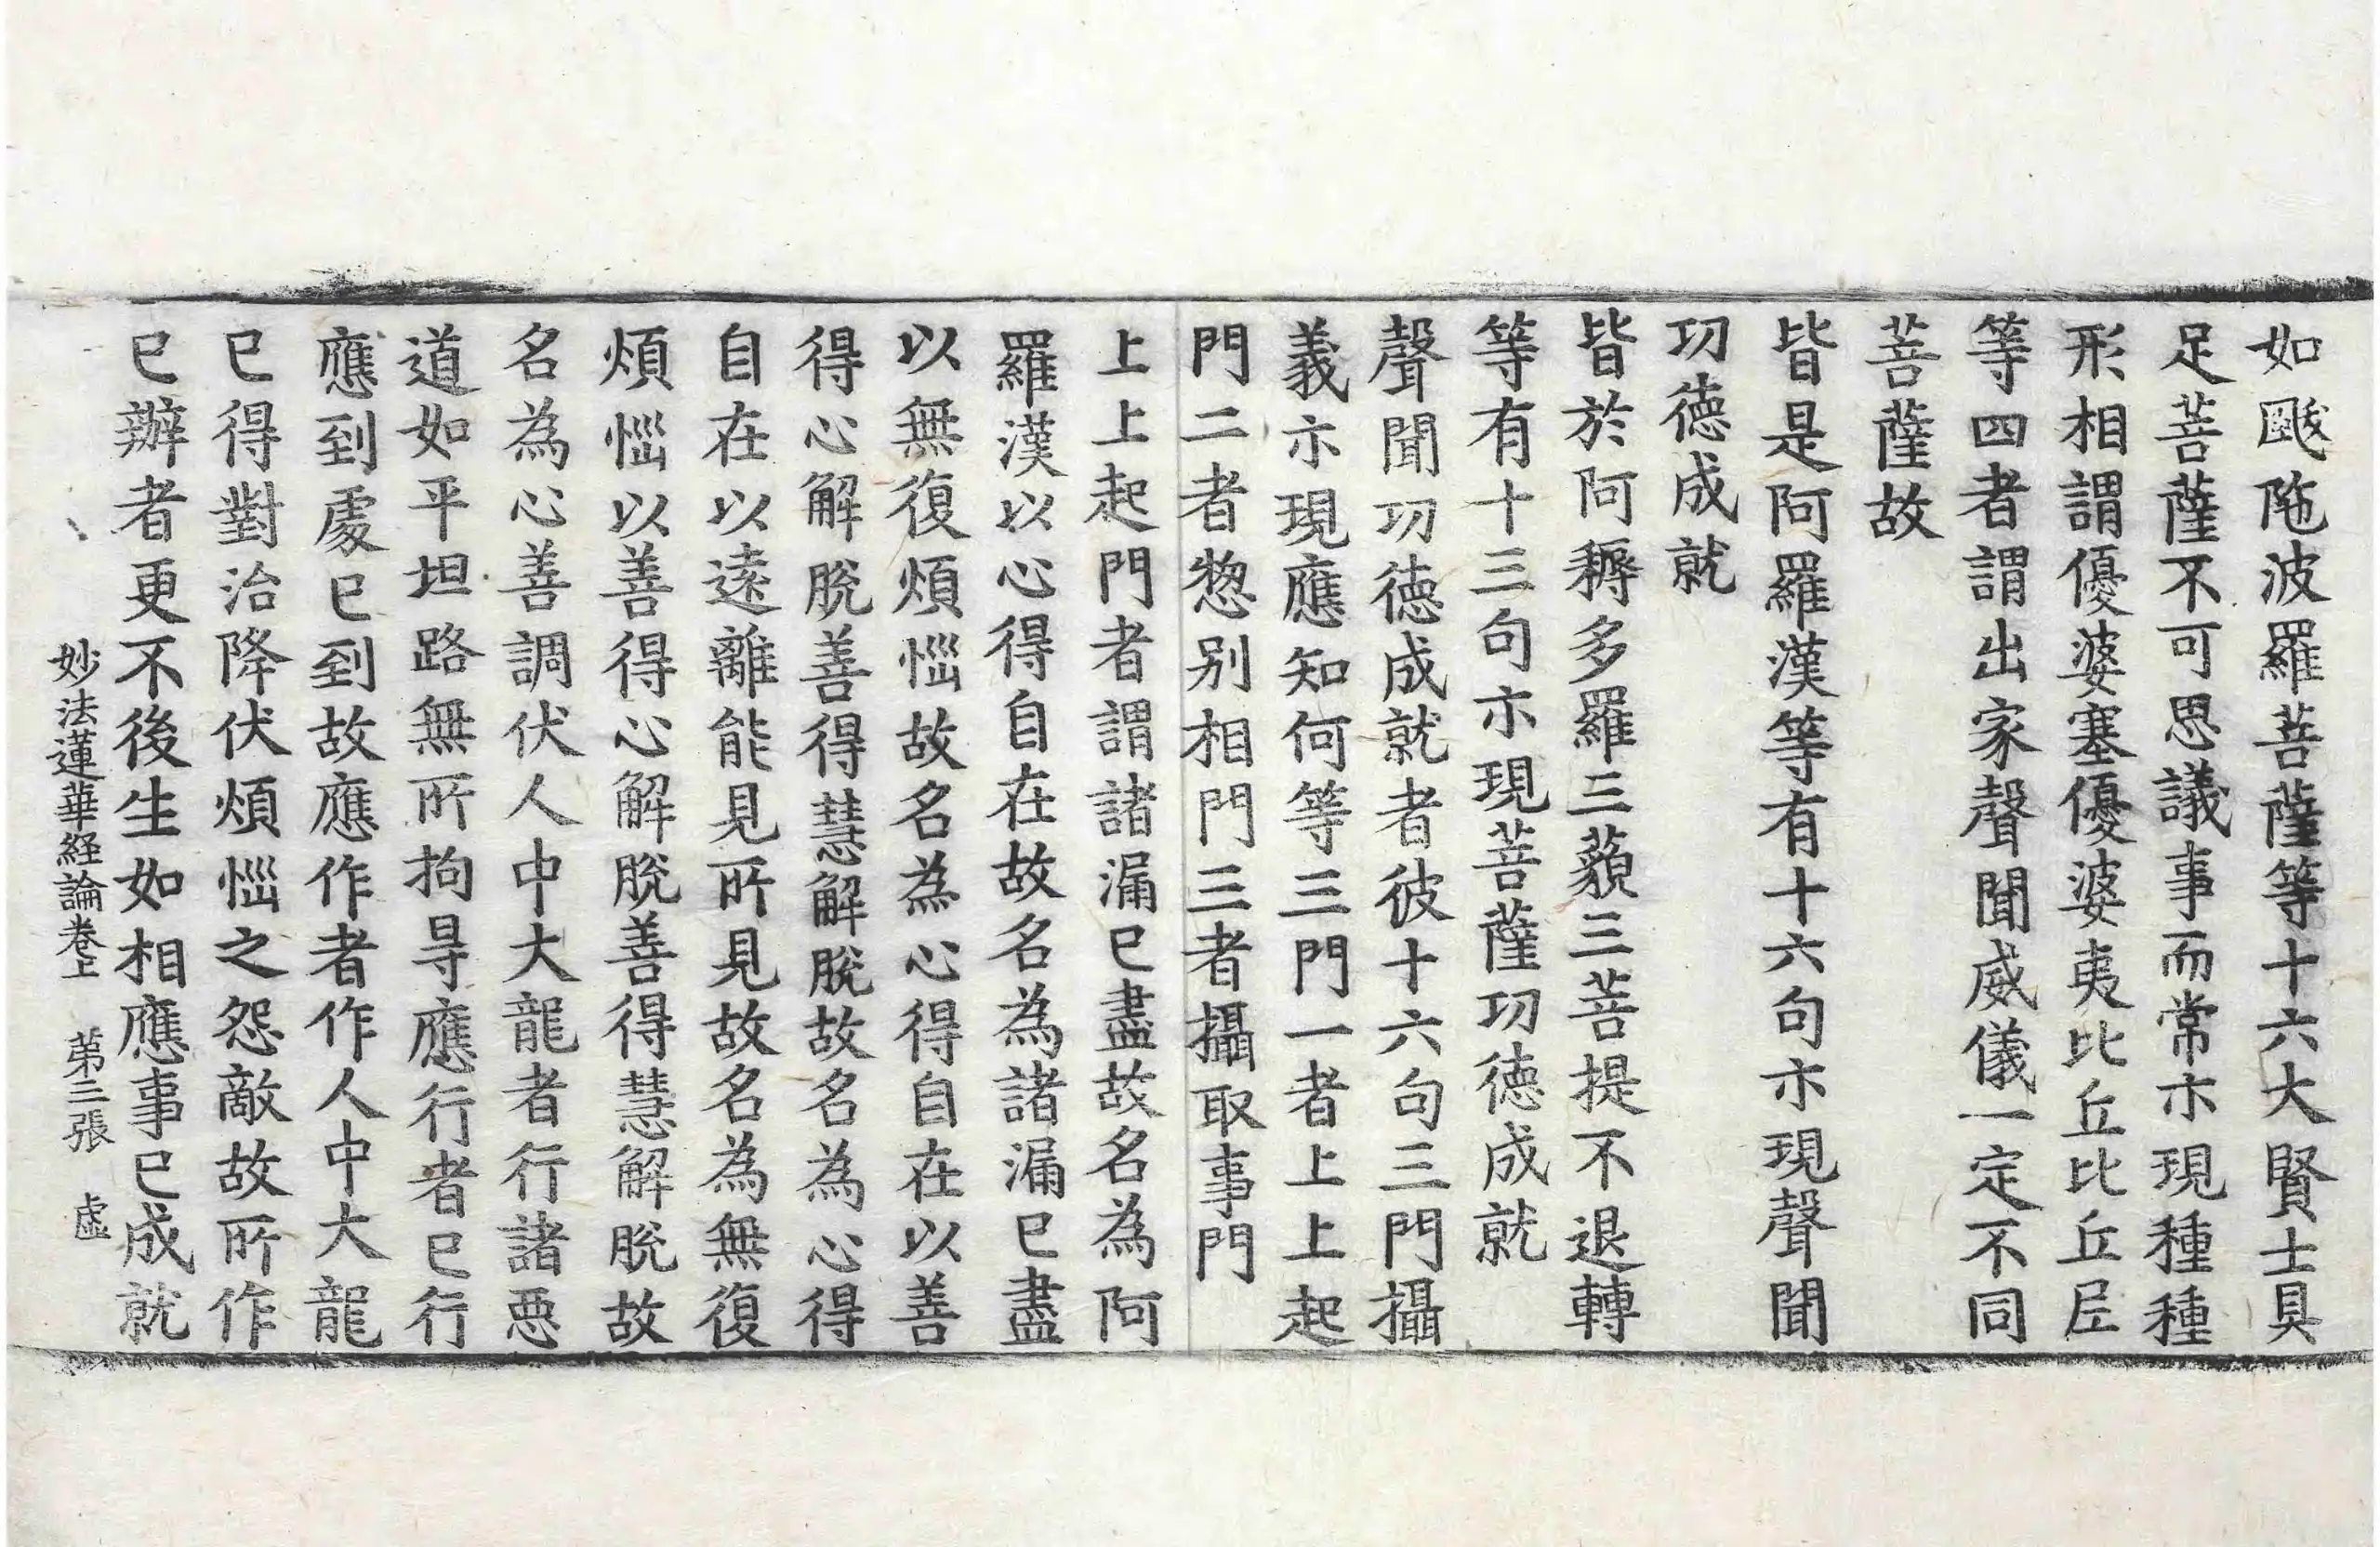 如颰陁波羅菩薩等十六大賢士具
足菩薩不可思議事而常示現種種
形相謂優婆塞優婆夷比丘比丘𡰱
等四者謂出家聲聞威儀一定不同
菩薩故
皆是阿羅漢等有十六句示現聲聞
功德成就
皆於阿耨多羅三藐三菩提不退轉
等有十三句示現菩薩功德成就
聲聞功德成就者彼十六句三門攝
義示現應知何等三門一者上上起
門二者惣別相門三者攝取事門
上上起門者謂諸漏已盡故名為阿
羅漢以心得自在故名為諸漏已盡
以無復煩惱故名為心得自在以善
得心解脫善得慧解脫故名為心得
自在以遠離能見所見故名為無復
煩惱以善得心解脫善得慧解脫故
名為心善調伏人中大龍者行諸惡
道如平坦路無所拘㝵應行者已行
應到處已到故應作者作人中大龍
已得對治降伏煩惱之怨敵故所作
已辦者更不後生如相應事已成就
妙法蓮華経論卷上 第三張 虛